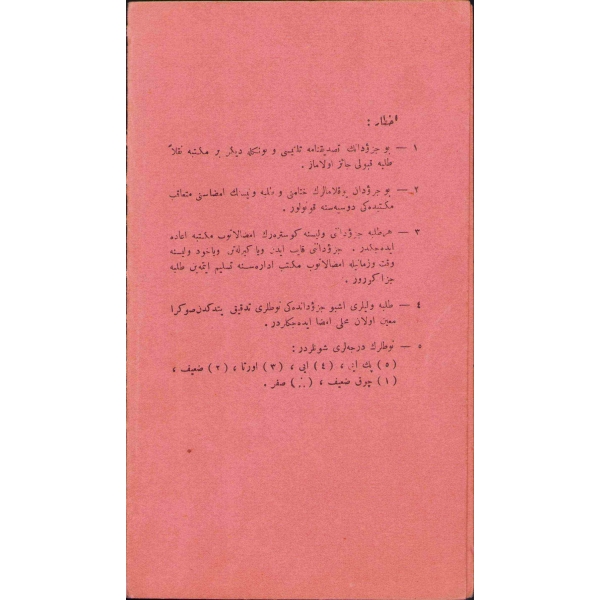 اخطار :
١ — بو جزؤدانك تصديقنامه تلقيسى و بونكله ديكر بر مكتبه نقلاً
طلبه قبولى جائز اولاماز .
٢ — بو جزؤدان يوقلامالرك ختامنى و طلبه وليسنك امضاسنى متعاقب
مكتبده‌كى دوسيه‌سنه قونولور .
٣ — هر طلبه جزؤدانى وليسنه كوستره‌رك امضالاتوب مكتبه اعاده
ايده‌جكدر . جزؤدانى غائب ايدن ويا كيرله‌تن وياخود وليسنه
وقت وزمانيله امضالاتوب مكتب اداره‌سنه تسليم ايتمه‌ين طلبه
جزا كورور .
٤ — طلبه وليلرى اشبو جزؤدانده‌كى نوطلرى تدقيق ايتدكدن صوكرا
معين اولان محلى امضا ايده‌جكلردر .
٥ — نوطلرك درجه‌لرى شونلردر :
( ٥ ) پك ايى ، ( ٤ ) ايى ، ( ٣ ) اورتا ، ( ٢ ) ضعيف ،
( ١ ) چوق ضعيف ، ( ) صفر .